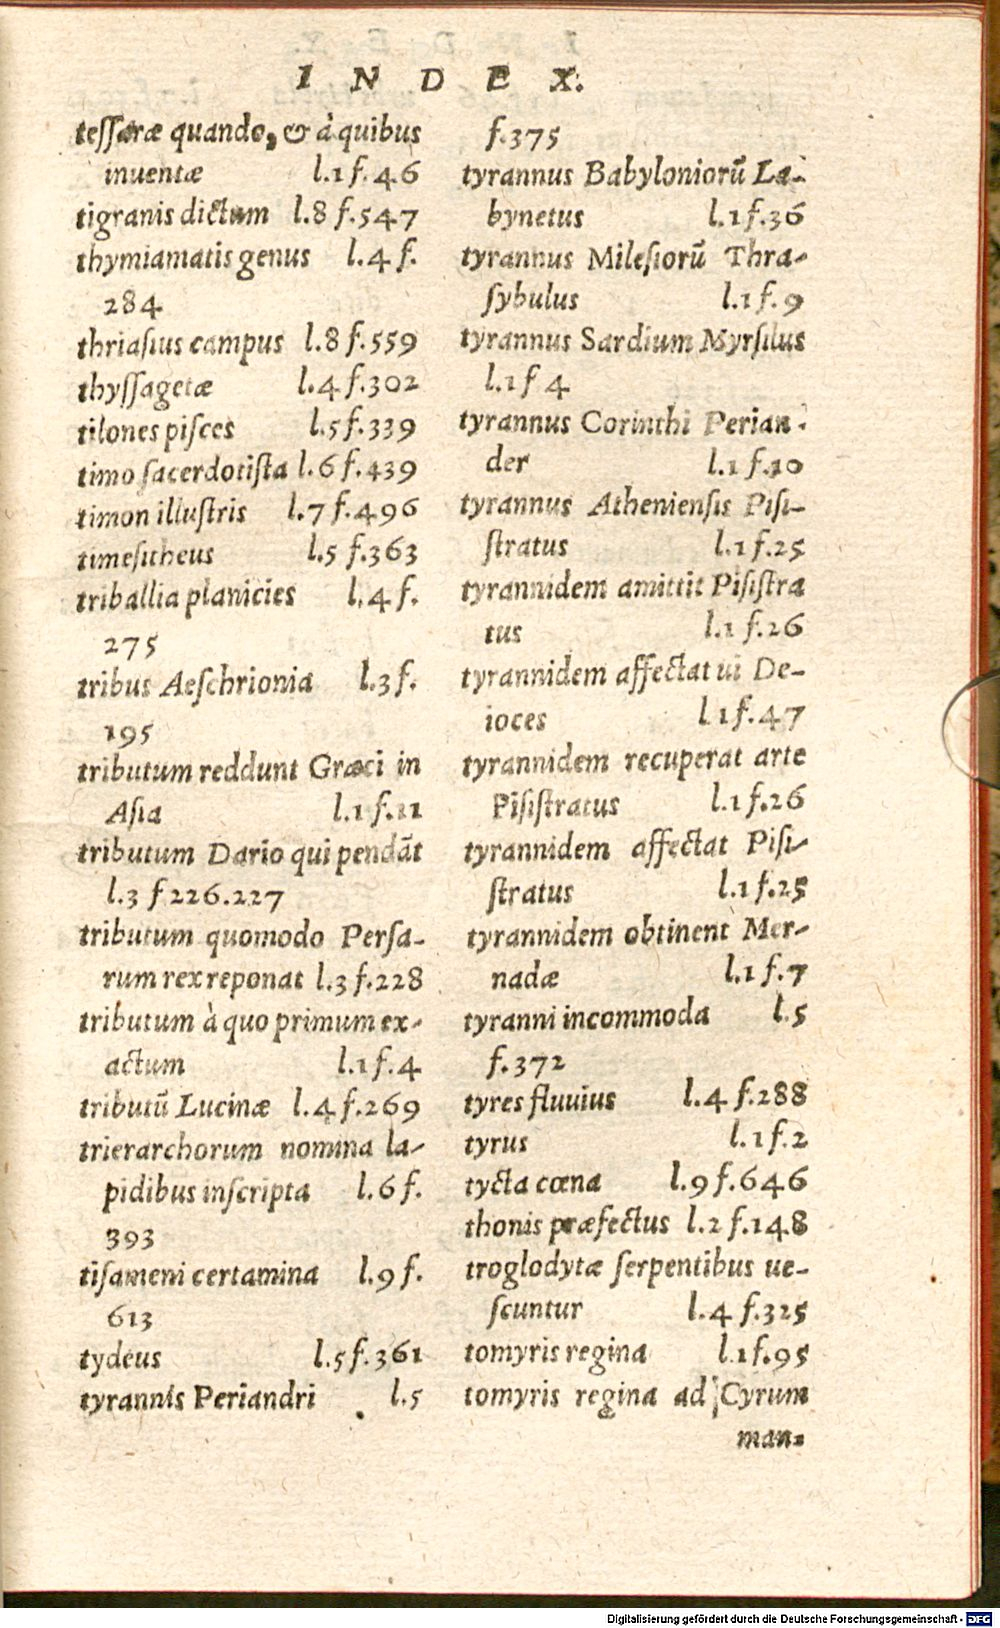 I N D E X.
teſſeræ quando, & à quibus
inuentæ l.1 f.46
tigranis dictum l.8 f.547
thymiamatis genus l.4 f.
284
thriaſius campus l.8 f.559
thyſſagetæ l.4 f.302
tilones piſces l.5 f.339
timo ſacerdotiſta l.6 f.439
timon illuſtris l.7 f.496
timeſitheus l.5 f.363
triballia planicies l.4 f.
275
tribus Aeſchrionia l.3 f.
195
tributum reddunt Græci in
Aſia l.1 f.11
tributum Dario qui pendāt
l.3 f 226.227
tributum quomodo Perſa-
rum rex reponat l.3 f.228
tributum à quo primum ex-
actum l.1 f.4
tributū Lucinæ l.4 f.269
trierarchorum nomina la-
pidibus inſcripta l.6 f.
393
tiſameni certamina l.9 f.
613
tydeus l.5 f.361
tyrannis Periandri l.5
f.375
tyrannus Babyloniorū La-
bynetus l.1 f.36
tyrannus Mileſiorū Thra-
ſybulus l.1 f.9
tyrannus Sardium Myrſilus
l.1 f 4
tyrannus Corinthi Perian-
der l.1 f.10
tyrannus Athenienſis Piſi-
ſtratus l.1 f.25
tyrannidem amittit Piſiſtra
tus l.1 f.26
tyrannidem affectat ui De-
ioces l 1 f.47
tyrannidem recuperat arte
Piſiſtratus l.1 f.26
tyrannidem affectat Piſi-
ſtratus l.1 f.25
tyrannidem obtinent Mer-
nadæ l.1 f.7
tyranni incommoda l.5
f.372
tyres fluuius l.4 f.288
tyrus l.1 f.2
tycta cœna l.9 f.646
thonis præfectus l.2 f.148
troglodytæ ſerpentibus ue-
ſcuntur l.4 f.325
tomyris regina l.1 f.95
tomyris regina ad Cyrum
man-
Digitalisierung gefördert durch die Deutsche Forschungsgemeinschaft - DFG